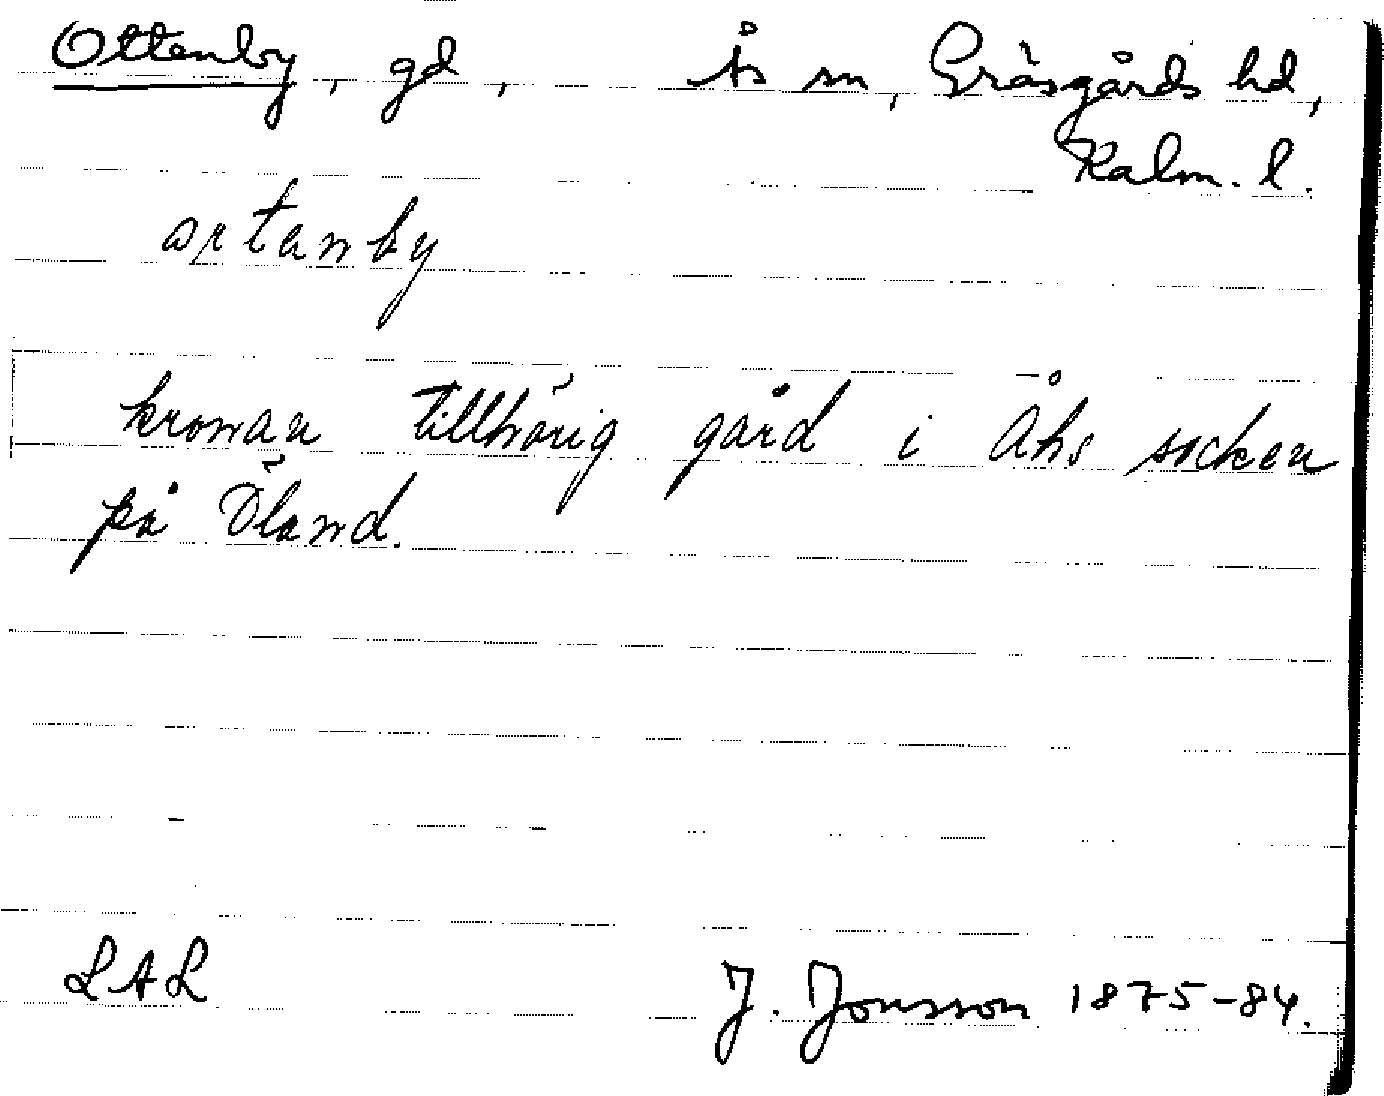 Ottenby, gd, Ås sn, Gräsgårds hd,
Kalm. l.
kronan tillhörig gård i Åhs socken
på Öland.
LAL J. Jonsson 1875-84.